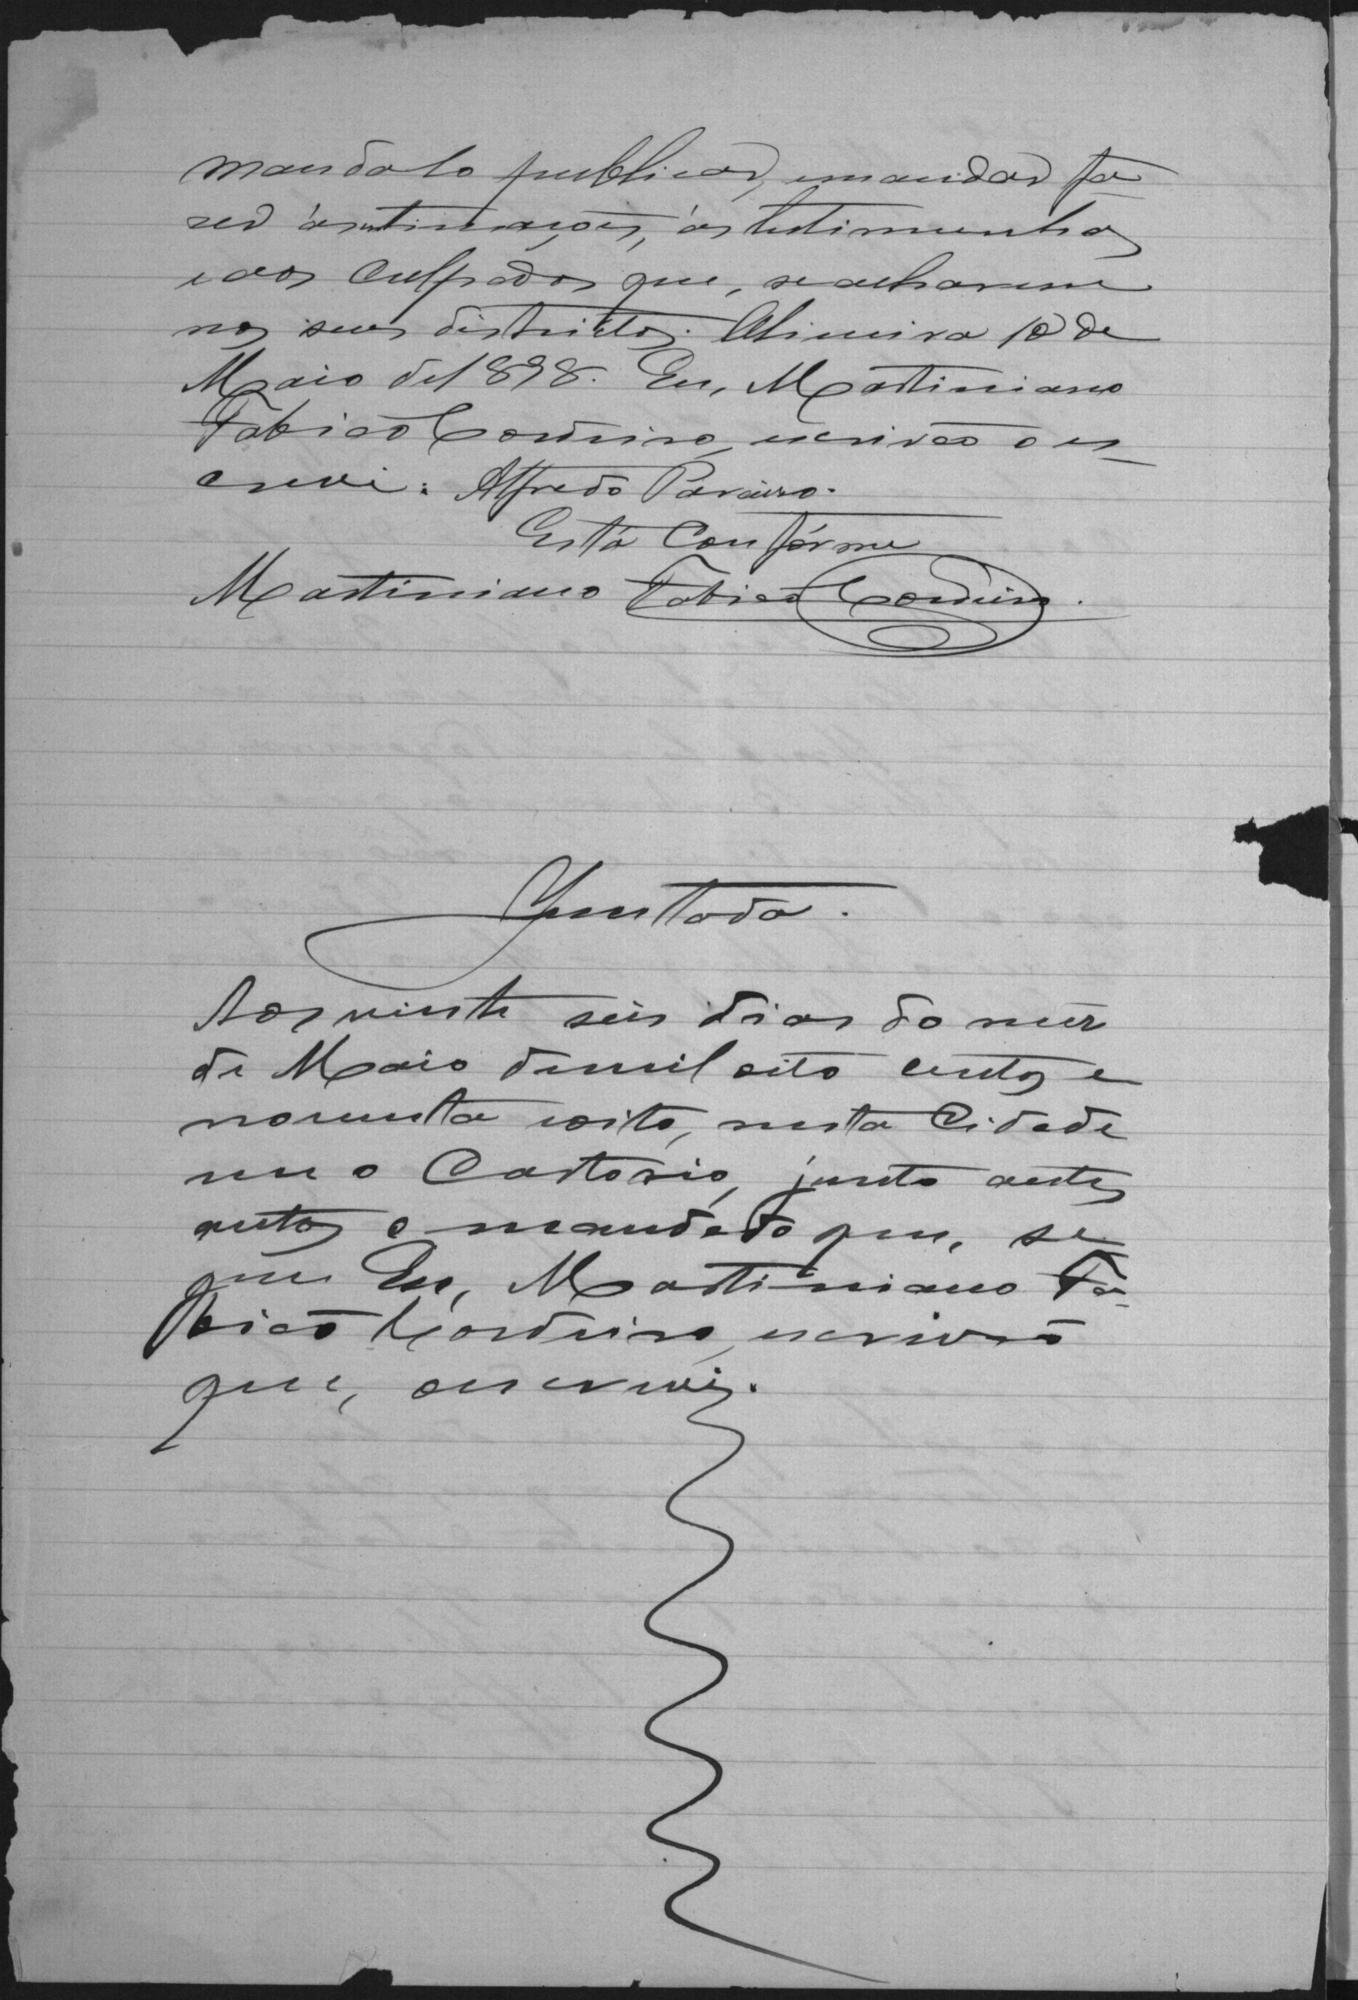 mandalo publicar, e mandar fa-
zer ás intimações, ás testimunhas
e aos culpados que, se acharem
nos seus districtos. Limeira 10 de
Maio de 1898. Eu, Martiniano
Fabião Cordeiro, escrivão o es-
crevi: Alfredo
Está Confórme
Martiniano Fabião Cordeiro.
Juntada.
Aos vinte seis dias do mez
de Maio de mil oito centos e
noventa e oito, nesta Cidade
em o Cartorio, junto a estes
autos o mandado que, se
gue Eu, Martiniano Fa-
bião Cordeiro, escrivão
que, o escrevi.